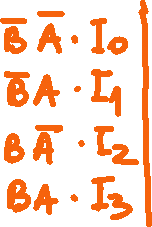 B̅ A̅ · I₀
B̅ A · I₁
B A̅ · I₂
B A · I₃